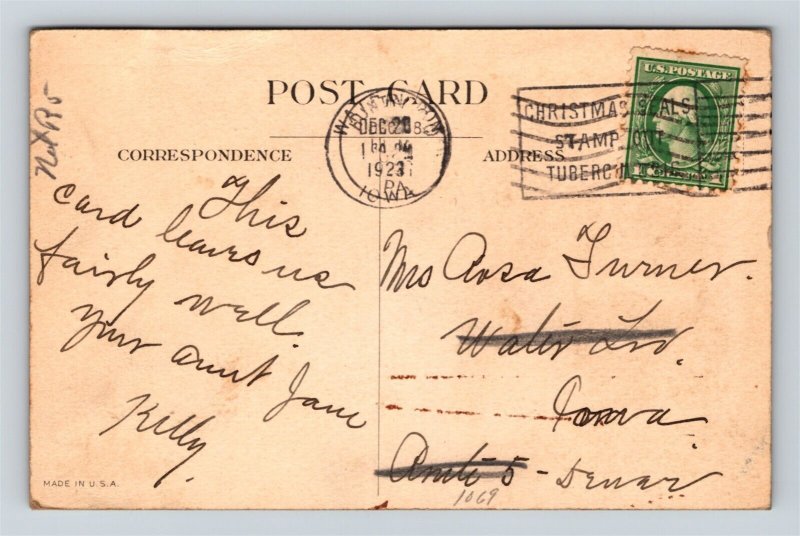 POST CARD
CORRESPONDENCE
ADDRESS
This
card leaves us
fairly well.
your aunt Jane
Kelly.
DEC
1923
IOWA
CHRISTMAS SEALS
STAMP OUT
U.S. POSTAGE
Mrs Rosa Turner.
Water Loo.
Iowa
5 - Denver
1069
MADE IN U.S.A.